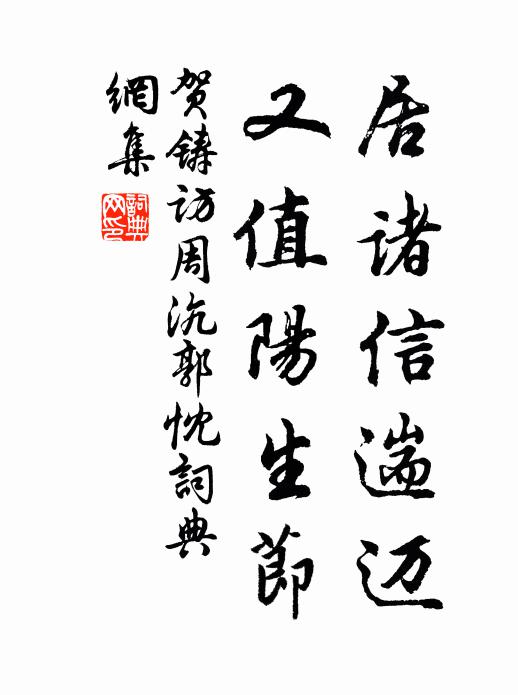 居诸信遄迈
又值陽生節
贺鑄访周沆郭忱詞典
網集
詞典
网印